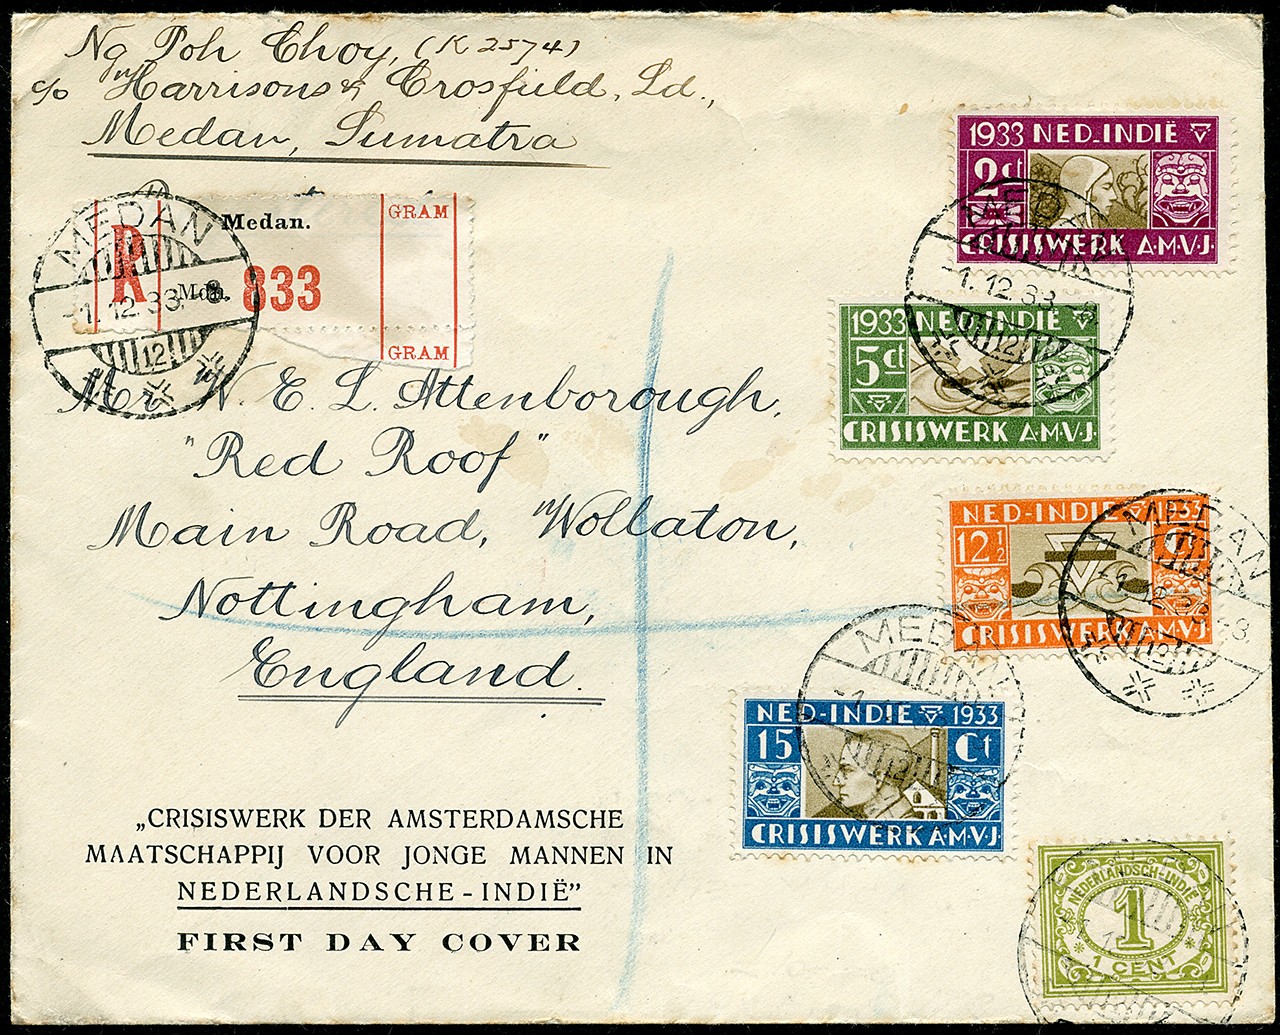 Ng Poh Choy, (K 2574)
c/o Harrisons & Crosfield, Ld.,
Medan, Sumatra
MEDAN
-1.12.33.-8
12
R
Medan.
Mdn.
833
GRAM
GRAM
Mr N. E. L. Attenborough,
"Red Roof"
Main Road, Wollaton,
Nottingham,
England.
„CRISISWERK DER AMSTERDAMSCHE
MAATSCHAPPIJ VOOR JONGE MANNEN IN
NEDERLANDSCHE-INDIË”
FIRST DAY COVER
1933 NED-INDIË
2ct
CRISISWERK A·M·V·J·
MEDAN
-1.12.33.-8
12
1933 NED-INDIË
5ct
CRISISWERK A·M·V·J·
NED-INDIË 1933
12½ Ct
CRISISWERK A·M·V·J·
MEDAN
12
NED-INDIË 1933
15 Ct
CRISISWERK A·M·V·J·
MEDAN
12
NEDERLANDSCH-INDIË
1
1 CENT